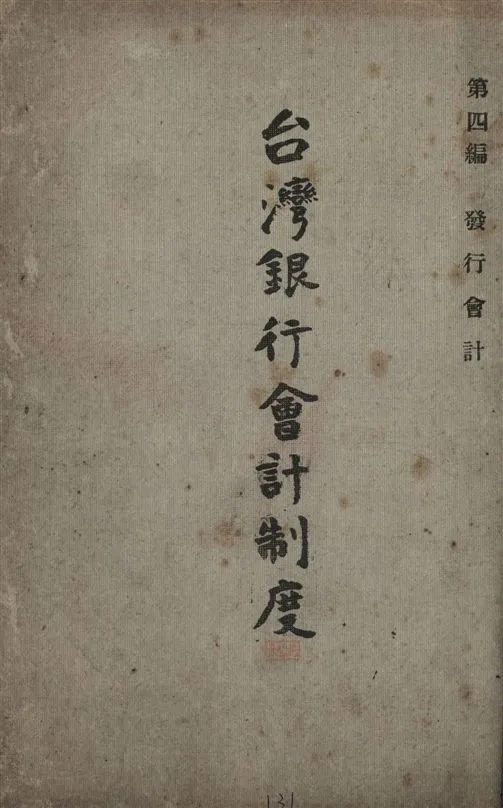 第四編 發行會計
台灣銀行會計制度
131